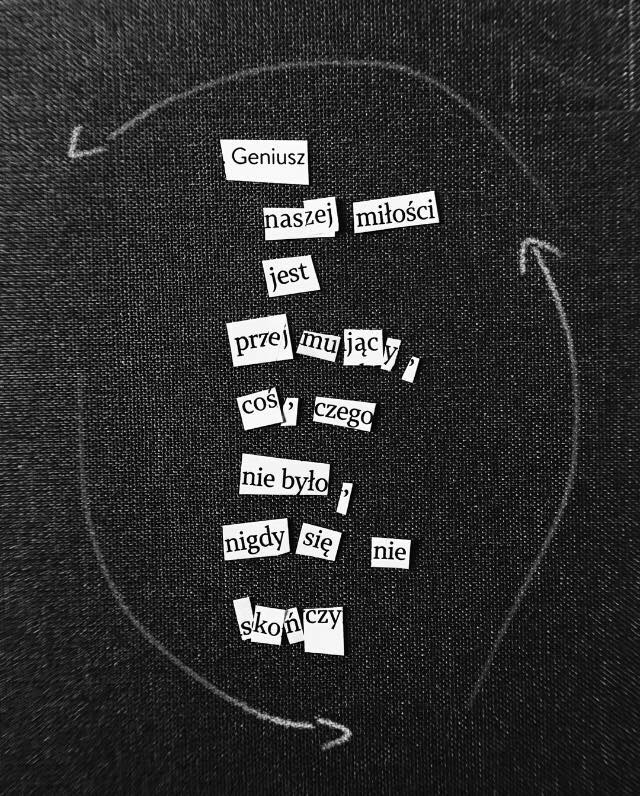 Geniusz
naszej miłości
jest
przejmujący,
coś, czego
nie było,
nigdy się nie
skończy